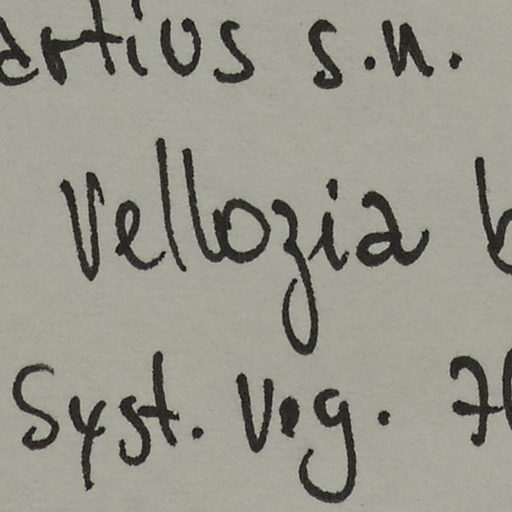 artius s.n.
Vellozia b
Syst. Veg. 7(